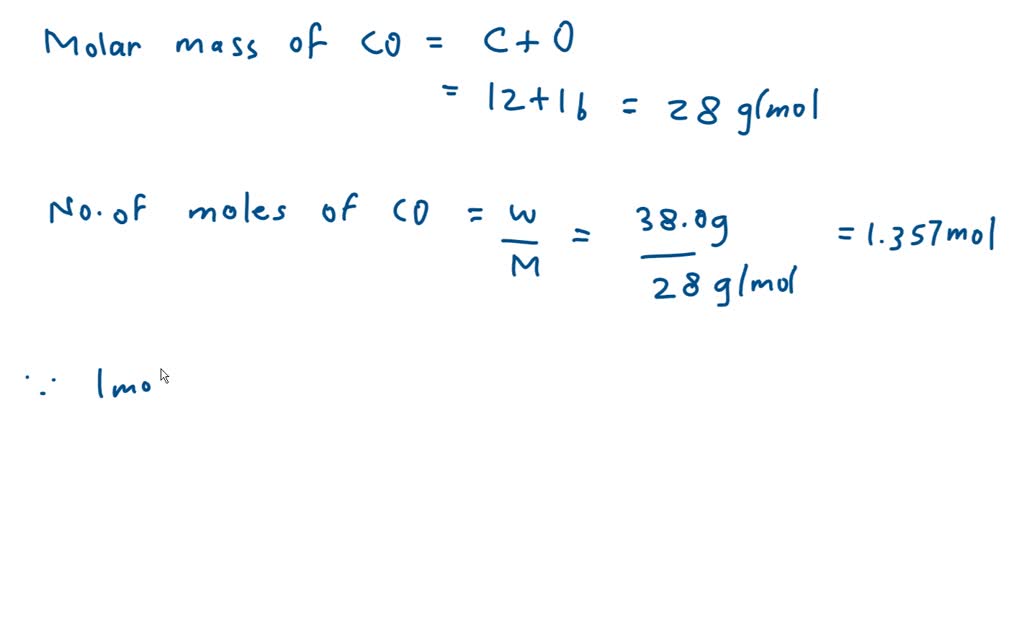 Molar mass of CO = C + O
= 12 + 16 = 28 g/mol
No. of moles of CO = w/M = 38.0g / 28 g/mol = 1.357 mol
∵ 1 mo